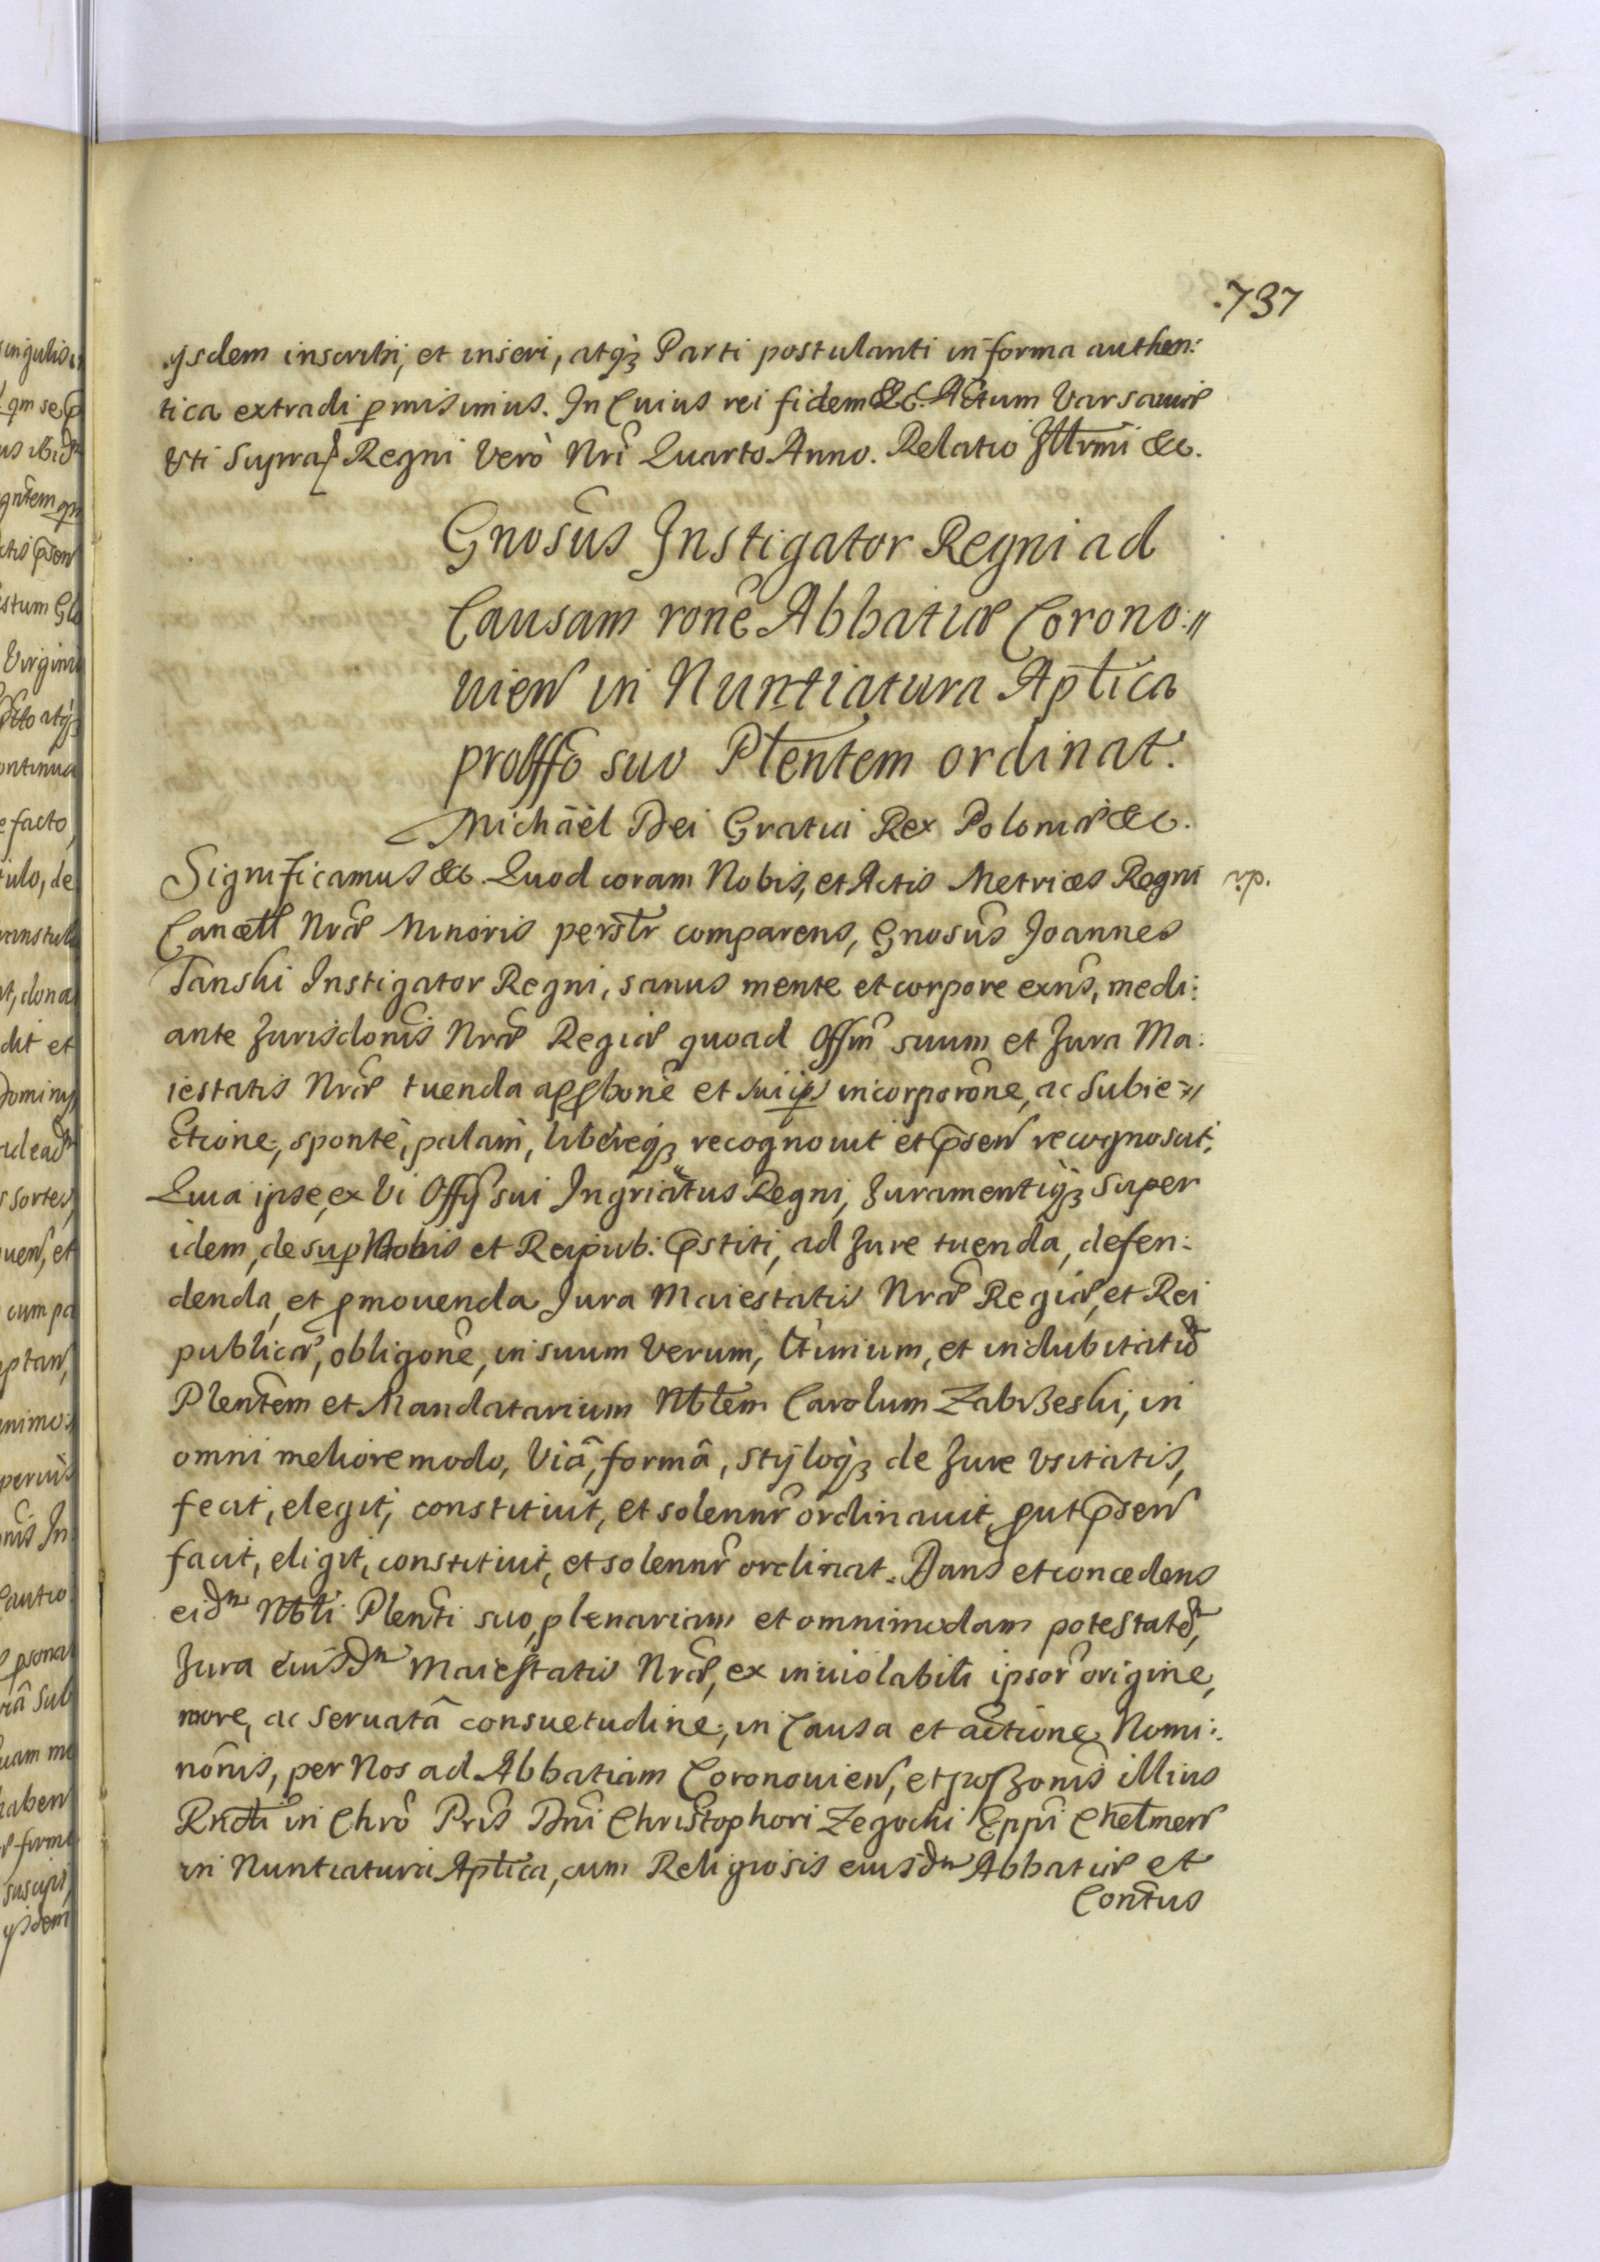 .737
ijsdem inscribi, et inseri, atq3 Parti postulanti in forma authen:
tica extradi pmisimus. In Cuius rei fidem &c. Actum Varsauiæ
Vti Supra Regni Verò Nri Quarto Anno. Relatio Illrmi &c.
Gnosus Instigator Regni ad
Causam rone Abbatiæ Corono:
uien in Nuntiatura Aptica
pro suo Plentem ordinat.
Michäel Dei Gratia Rex Poloniæ &c.
Significamus &c. Quod coram Nobis, et Actis Metrices Regni
Cancell Nræ Minoris persr comparens, Gnosus Joannes
Tanski Instigator Regni, sanus mente et corpore exns, medi:
ante Jurisdonis Nræ Regiæ quoad Offm suum et Jura Ma:
iestatis Nræ tuenda appbone et sui ips incorporone, ac Subie
ctione, spontè, palam, liberèq3 recognouit et psen recognoscit,
Quia ipse, ex Vi Offy sui Ingriatus Regni, Juramentiq3 Super
idem, de sup Nobis et Reipub: pstiti, ad Jure tuenda, defen:
denda, et pmouenda Jura Maiestatis Nræ Regiæ, et Rei
publicæ, obligone, in suum Verum, Ltimum, et indubitatu
Plentem et Mandatarium Nblem Carolum Zabrzeski, in
omni meliore modo, Viâ, formâ, stÿloq3 de Jure Vsitatis,
fecit, elegit, constituit, et solennr ordinauit, put psen
facit, eligit, constituit, et solennr ordinat. Dans et concedens
eidm Nbli Plenti suo, plenariam et omnimodam potestate,
Jura eiusdm Maiestatis Nræ, ex inuiolabili ipsor origine,
more, ac Seruatâ consuetudine, in Causa et actione Nomi:
nonis, per Nos ad Abbatiam Coronouien, et possonis illius
Rndi in Chro Pris Dni Christophori Zegocki Eppi Chelmen
in Nuntiatura Aptica, cum Religiosis eiusdm Abbatiæ et
Contus